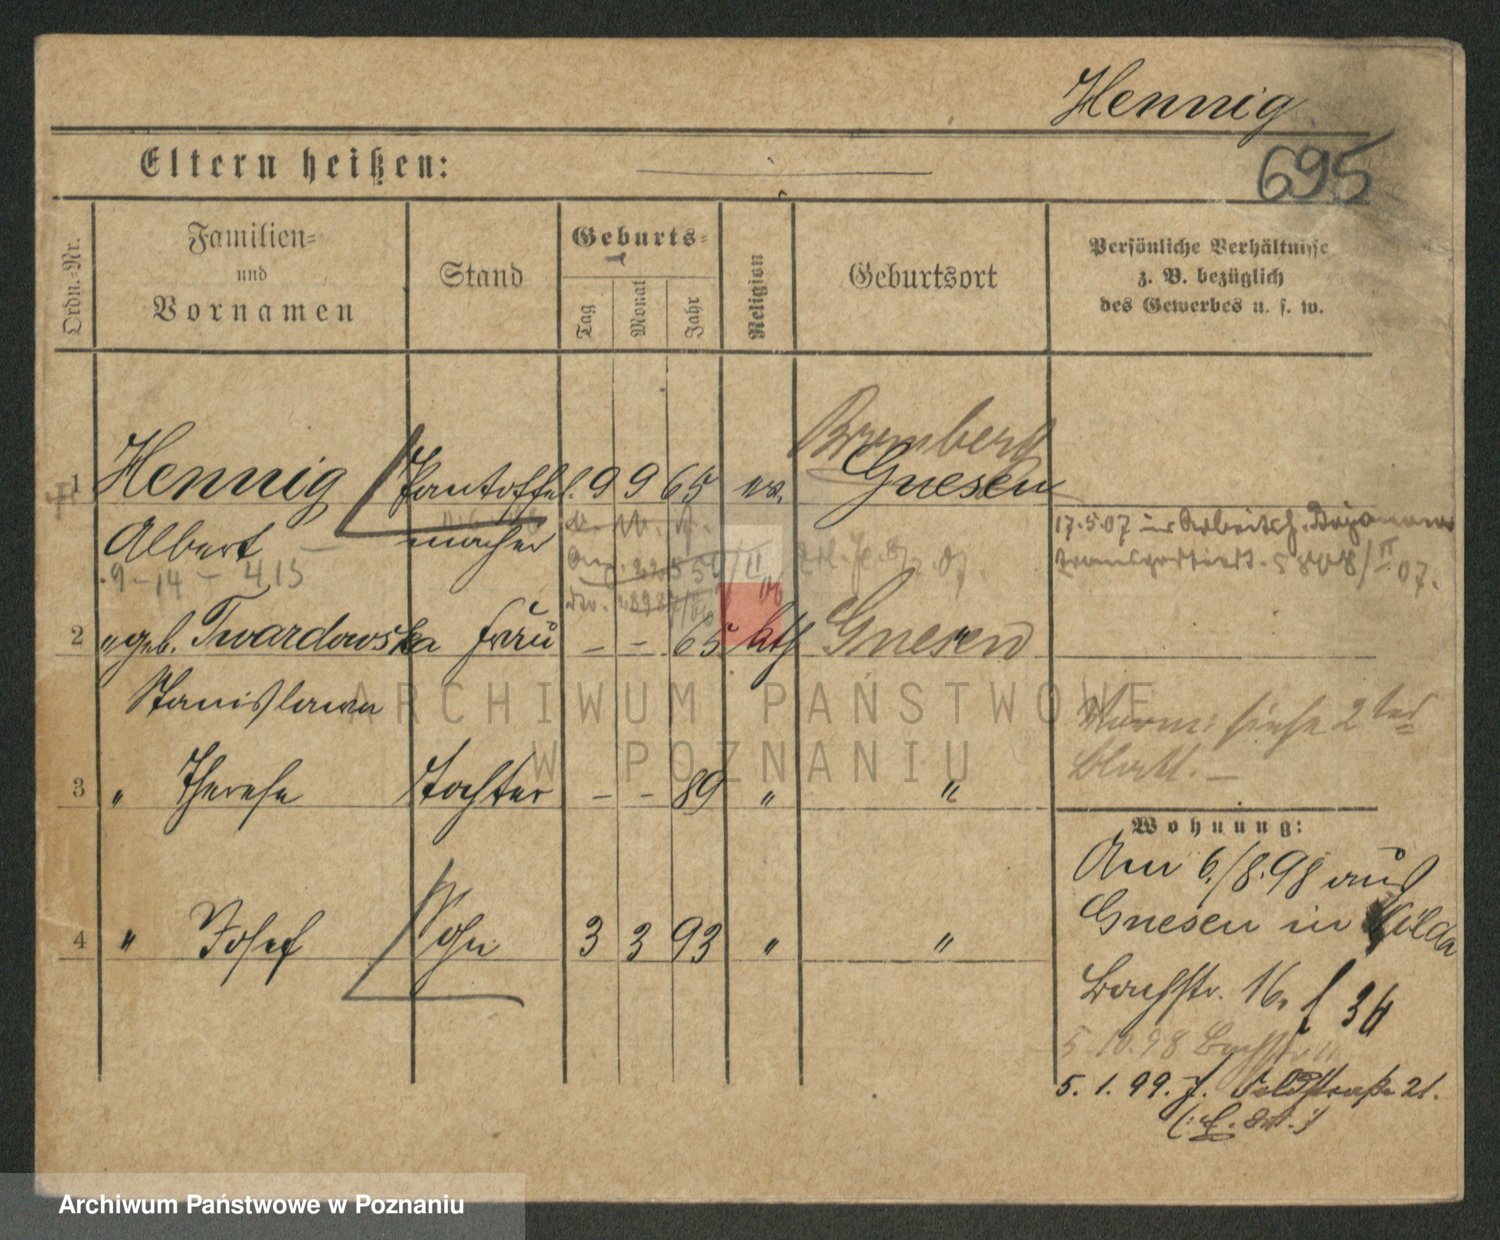 Hennig
695
Eltern heißen:
Ordn.-Nr.
Familien-
und
Vornamen
Stand
Geburts-
Tag
Monat
Jahr
Religion
Geburtsort
Persönliche Verhältnisse
z. B. bezüglich
des Gewerbes u. s. w.
Bromberg
1 Hennig Pantoffel. 9 9 65 ev. Gnesen
Albert macher
9-14-415
17.5.07 in Arbeitsh. Bojanowo
transportiert. 5808/II 07.
2 " geb. Twardowska Frau - - 65 kth Gnesen
Stanislawa
siehe 2tes
Blatt. -
3 " Therese Tochter - - 89 " "
Wohnung:
Am 6./8.98 aus
Gnesen in Wilda
4 " Josef Sohn 3 3 93 " "
Bachstr. 16.
5.10.98
5. 1. 99. f. Feldstraße 21.
ARCHIWUM PAŃSTWOWE
W POZNANIU
Archiwum Państwowe w Poznaniu